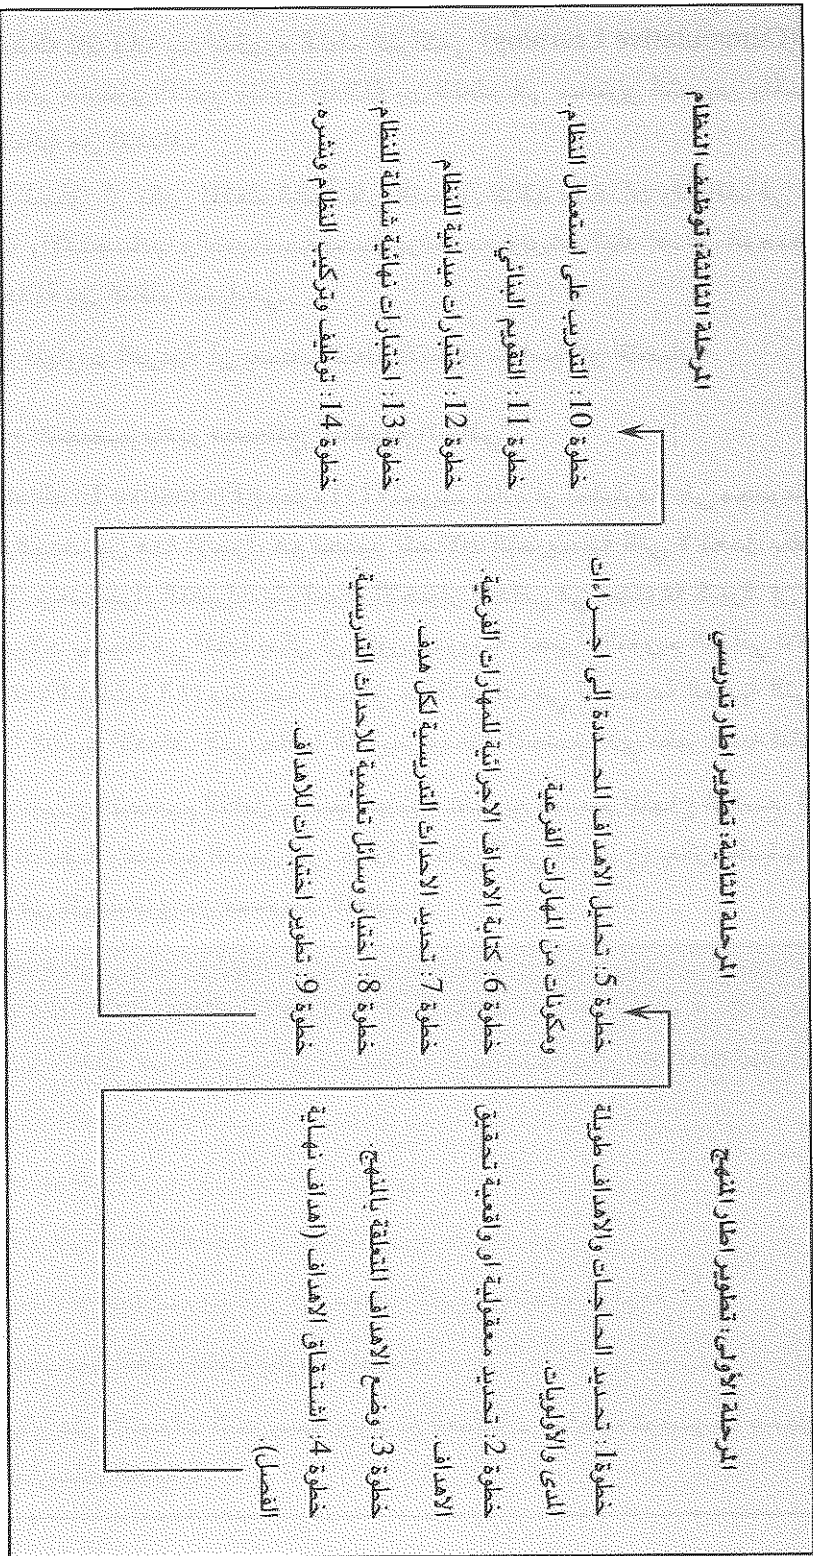 المرحلة الأولى: تطوير اطار المنهج
خطوة 1: تحديد الحاجات والاهداف طويلة
المدى والأولويات.
خطوة 2: تحديد معقولية او واقعية تحقيق
الاهداف.
خطوة 3: وضع الاهداف المتعلقة بالمنهج.
خطوة 4: اشتقاق الاهداف (اهداف نهاية
الفصل).
المرحلة الثانية: تطوير اطار تدريسي
خطوة 5: تحليل الاهداف المحددة إلى اجراءات
ومكونات من المهارات الفرعية.
خطوة 6: كتابة الاهداف الاجرائية للمهارات الفرعية.
خطوة 7: تحديد الاحداث التدريسية لكل هدف.
خطوة 8: اختيار وسائل تعليمية للاحداث التدريسية.
خطوة 9: تطوير اختبارات للاهداف.
المرحلة الثالثة: توظيف النظام
خطوة 10: التدريب على استعمال النظام.
خطوة 11: التقويم البنائي.
خطوة 12: اختبارات ميدانية للنظام
خطوة 13: اختبارات نهائية شاملة للنظام.
خطوة 14: توظيف وتركيب النظام ونشره.